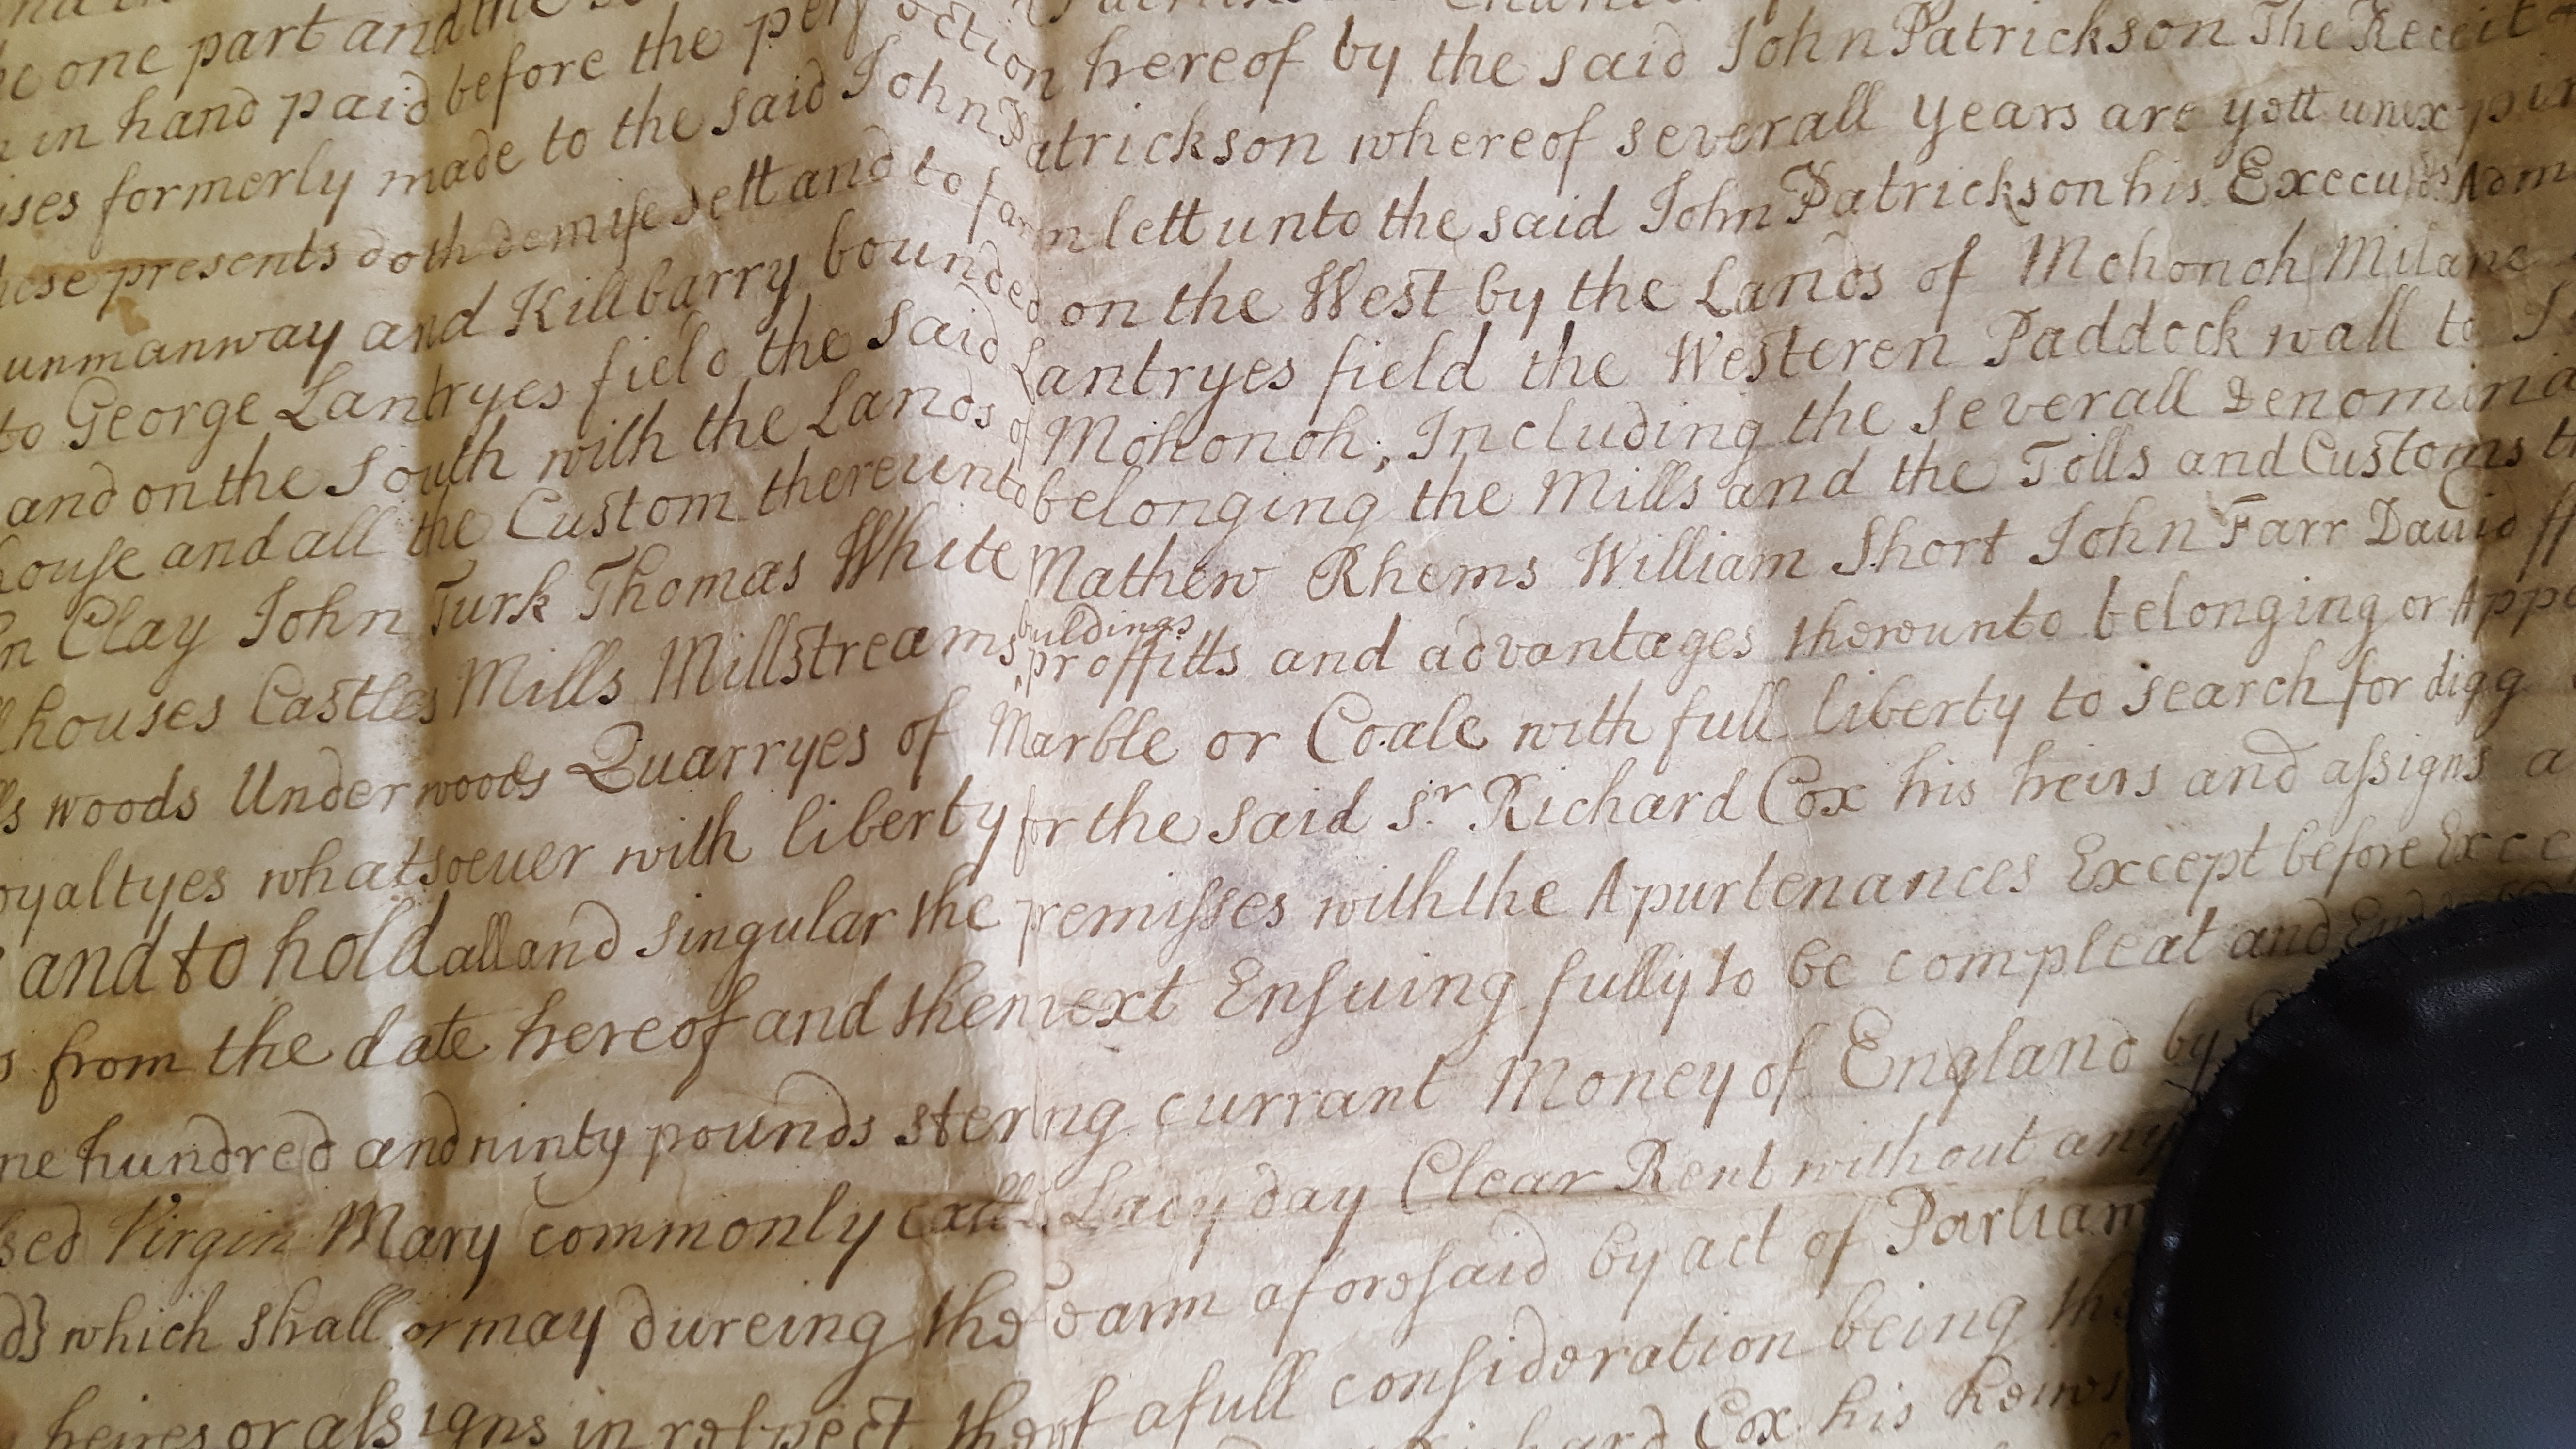 one part and the
in hand paid before the perfection hereof by the said John Patrickson The Receit
formerly made to the said John Patrickson whereof severall years are yett unexpir
presents doth demise sett and to farm lett unto the said John Patrickson his Execu:rs Adm
unmanway and Killbarry bounded on the West by the Lands of Mohonoh Milane
to George Lantryes field the said Lantryes field the Westeren Paddock wall to
and on the South with the Lands of Mohonoh; Including the severall Denomina
house and all the Custom thereunto belonging the Mills and the Tolls and Customs
Clay John Turk Thomas White Mathew Rhems William Short John Farr David ff
houses Castles Mills Millstreams, buildings proffitts and advantages thereunto belonging or Appe
woods Underwoods Quarryes of Marble or Coale with full liberty to search for digg
oyaltyes whatsoeuer with liberty for the said Sr. Richard Cox his heirs and assigns
and to hold all and singular the premisses with the Apurtenances Except before Exce
from the date hereof and then next Ensuing fully to be compleat and
ne hundred and ninty pounds sterling currant Money of England by
sed Virgin Mary commonly called Lady day Clear Rent without any
which shall or may dureing the tearm aforesaid by act of Parliam
heires or assigns in respect therof a full consideration being
Cox his heires